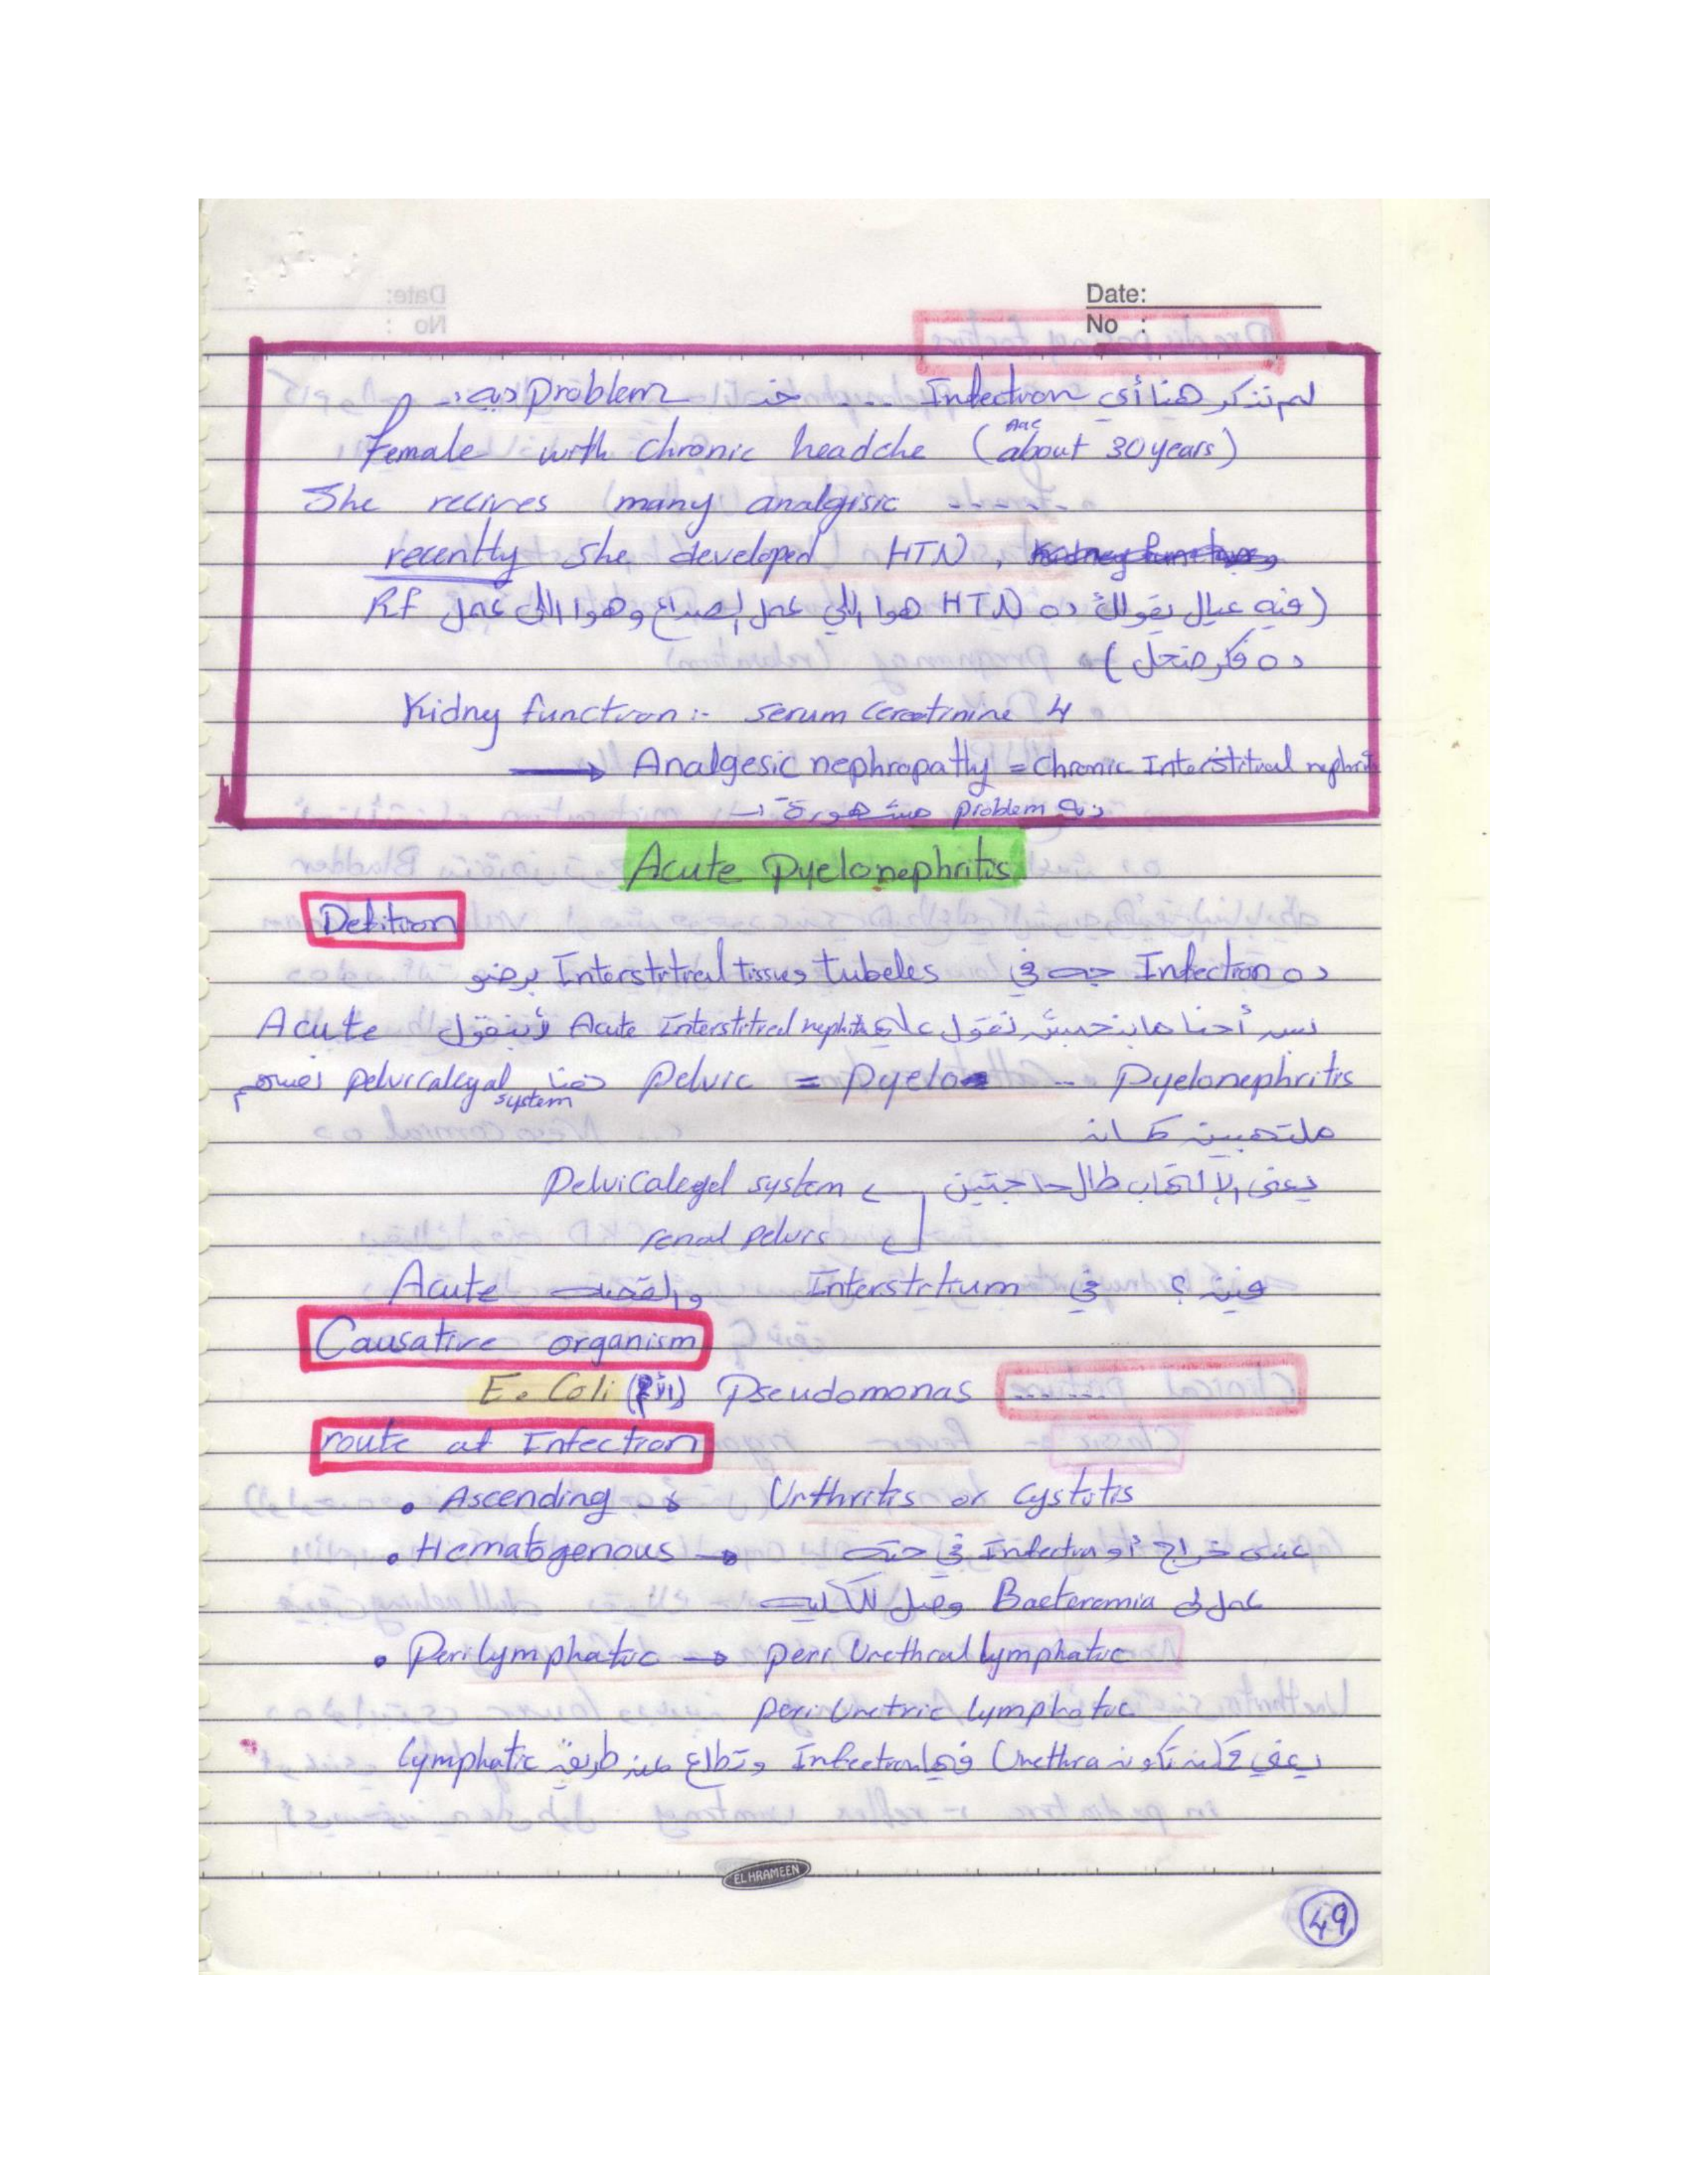 Date:
No :
لم نذكر هنا أي Infection ... خد problem ديه :-
Female with chronic headche (Age about 30 years)
She recives many analgisic
recently she developed HTN ,
(فيه عيال يقولك ده HTN هوا اللي عمل الصداع وهوا اللي عمل RF
ده فكر ضحل)
Kidny function :- serum cereatinine 4
→ Analgesic nephropathy = chronic Interstitial nephritis
ديه problem مشهورة :-
Acute Pyelonephritis
Defition
ده Infection جه في Interstitial tissue, tubeles برضو
بس أحنا مابنحبش نقول عليه Acute Interstitial nephritis لأ بنقول Acute
Pyelonephritis -- Pyelo = Pelvic معنا pelvicalegal system نفسهم
ملتهبين كمان
يعني الإلتهاب طال حاجتين → Pelvicalegel system
→ renal pelvis
فين ؟ في Interstitium والقصه Acute
Causative organism
E. Coli (الأهم) Pseudomonas
route of Infection
• Ascending → Urthritis or Cystitis
• Hematogenous → عندى خراج أو Infection في حته
عمل لى Bacteremia وصل للكليه
• Perilymphatic → peri Urethral lymphatic
peri Uretric lymphatic
يعني ممكن تكون Urethra فيها Infection وتطلع عن طريق lymphatic
EL HRAMEEN
49